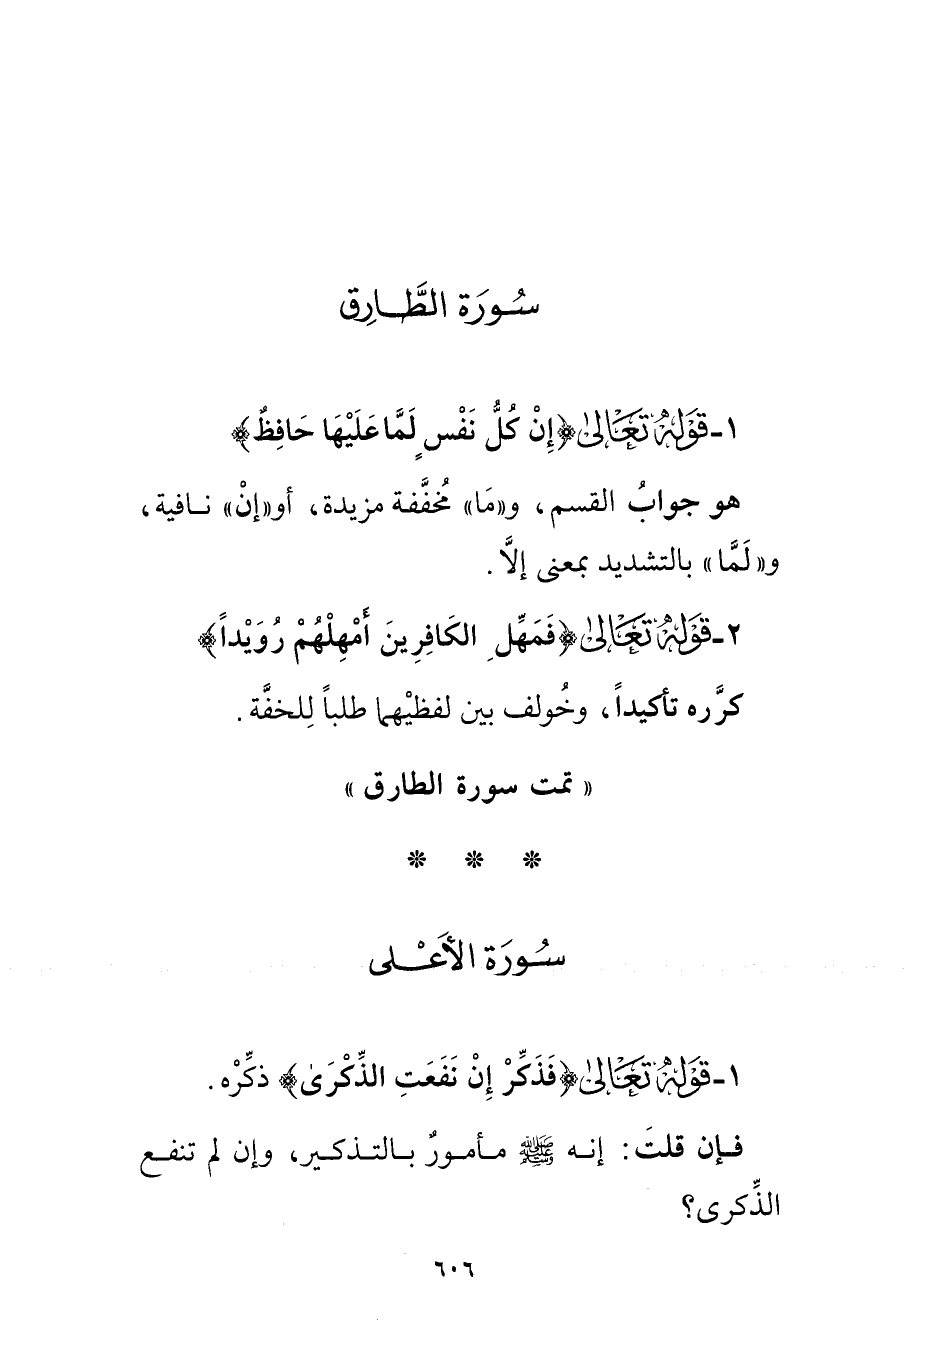 سُورَة الطَّارِق
١- قَوْلُهُ تَعَالَىٰ ﴿إِنْ كُلُّ نَفْسٍ لَمَّا عَلَيْهَا حَافِظٌ﴾
هو جوابُ القسم، و«مَا» مُخفَّفة مزيدة، أو «إنْ» نافية،
و«لَمَّا» بالتشديد بمعنى إلاَّ.
٢- قَوْلُهُ تَعَالَىٰ ﴿فَمَهِّلِ الكَافِرِينَ أَمْهِلْهُمْ رُوَيْداً﴾
كرَّره تأكيداً، وخُولف بين لفظيْهما طلباً لِلخفَّة.
« تمت سورة الطارق »
* * *
سُورَة الأَعْلى
١- قَوْلُهُ تَعَالَىٰ ﴿فَذَكِّرْ إِنْ نَفَعَتِ الذِّكْرَىٰ﴾ ذكِّرْه.
فإن قلتَ: إنه ﷺ مأمورٌ بالتذكير، وإن لم تنفع
الذِّكرى؟
٦٠٦